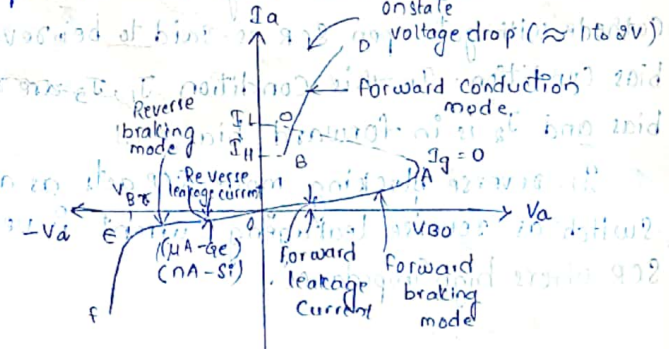 Ia
onstate
voltage drop (≈ 1 to 2V)
D
Forward conduction
mode.
Reverse
braking
mode
IL
O
IH
B
Ig = 0
A
VBr
Reverse
leakage current
-Va
E
0
VBO
Va
(μA-Ge)
(nA-Si)
Forward
leakage
Current
Forward
braking
mode
F